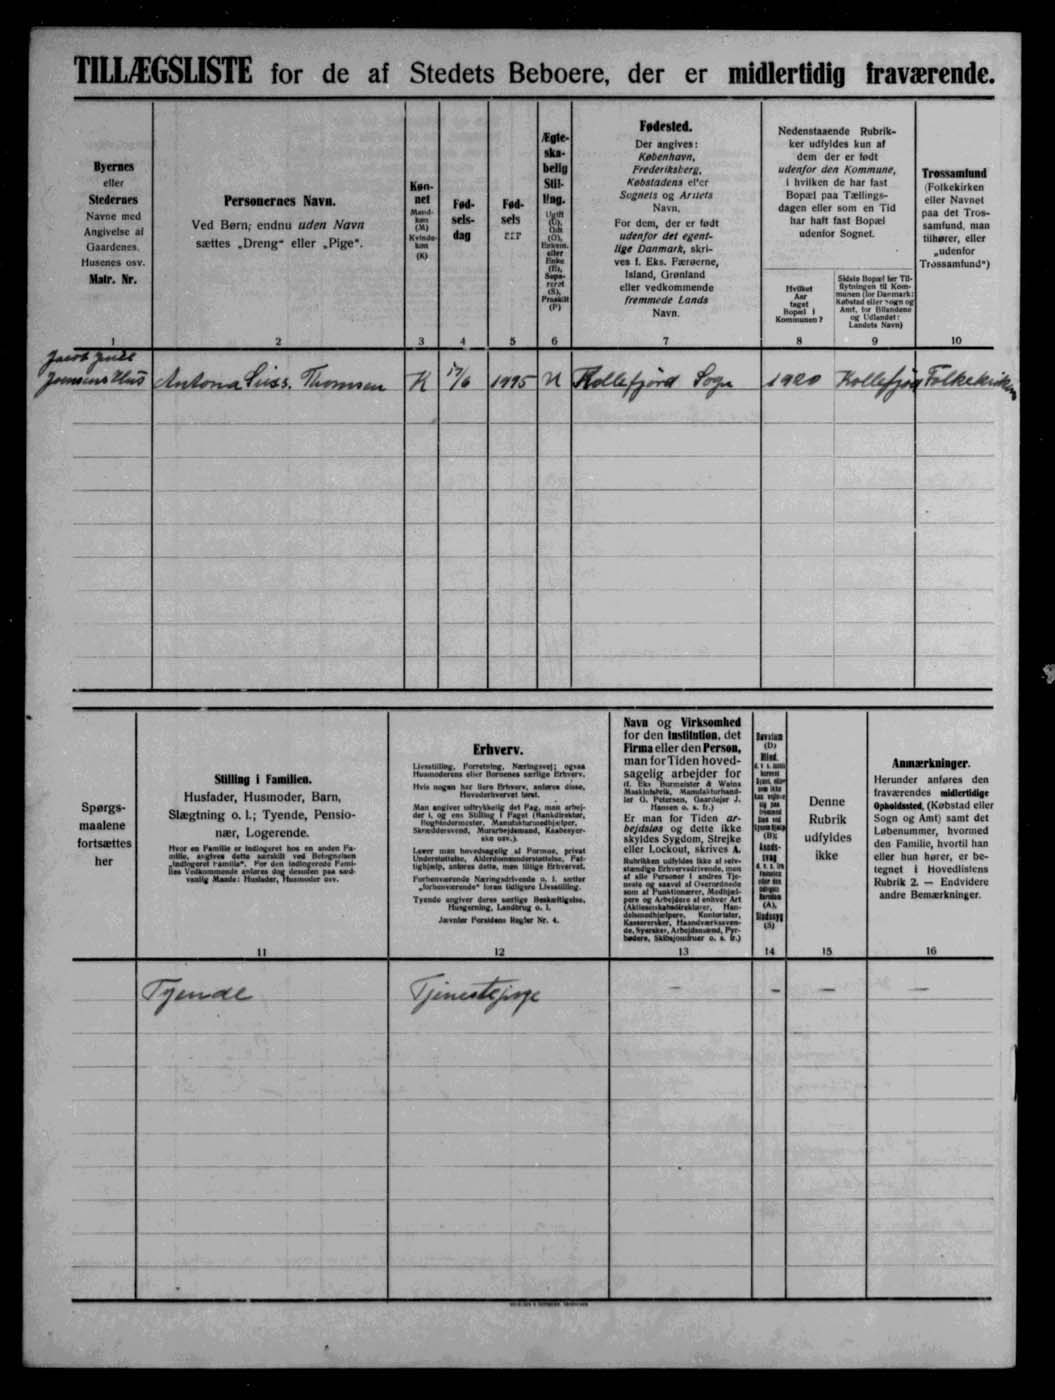 TILLÆGSLISTE for de af Stedets Beboere, der er midlertidig fraværende.
Byernes
eller
Stedernes
Navne med
Angivelse af
Gaardenes,
Husenes osv.
Matr. Nr.
1
Personernes Navn.
Ved Børn; endnu uden Navn
sættes „Dreng“ eller „Pige“.
2
Køn-
net
Mand-
køn
(M)
Kvinde-
køn
(K)
3
Fød-
sels-
dag
4
Fød-
sels
5
Ægte-
ska-
belig
Stil-
ling.
Ugift
(U),
Gift
(G),
Enkem.
eller
Enke
(E),
Sepa-
reret
(S),
Fraskilt
(F)
6
Fødested.
Der angives:
København,
Frederiksberg,
Købstadens eller
Sognets og Amtets
Navn.
For dem, der er født
udenfor det egent-
lige Danmark, skri-
ves f. Eks. Færøerne,
Island, Grønland
eller vedkommende
fremmede Lands
Navn.
7
Nedenstaaende Rubrik-
ker udfyldes kun af
dem der er født
udenfor den Kommune,
i hvilken de har fast
Bopæl paa Tællings-
dagen eller som en Tid
har haft fast Bopæl
udenfor Sognet.
Hvilket
Aar
taget
Bopæl i
Kommunen?
8
Sidste Bopæl før Til-
flytningen til Kom-
munen (for Danmark:
Købstad eller Sogn og
Amt, for Bilandene
og Udlandet:
Landets Navn)
9
Trossamfund
(Folkekirken
eller Navnet
paa det Tros-
samfund, man
tilhører, eller
„udenfor
Trossamfund“)
10
Antona Thomsen K 17/6 U Kollefjörd Sogn 1920 Kollefjörd Folkekirken
Spørgs-
maalene
fortsættes
her
Stilling i Familien.
Husfader, Husmoder, Barn,
Slægtning o. l.; Tyende, Pensio-
nær, Logerende.
Hvor en Familie er indlogeret hos en anden Fa-
milie, angives dette særskilt ved Betegnelsen
„Indlogeret Familie“. For den indlogerede Fami-
lies Vedkommende anføres dog desuden paa sæd-
vanlig Maade: Husfader, Husmoder osv.
11
Erhverv.
Livsstilling, Forretning, Næringsvej; ogsaa
Husmoderens eller Børnenes særlige Erhverv.
Hvis nogen har flere Erhverv, anføres disse,
Hovederhvervet først.
Man angiver udtrykkelig det Fag, man arbej-
der i, og ens Stilling i Faget (Bankdirektør,
Bogbindermester, Manufakturmedhjælper,
Skræddersvend, Murarbejdsmand, Kaabesyer-
ske osv.).
Lever man hovedsagelig af Formue, privat
Understøttelse, Alderdomsunderstøttelse, Fat-
tighjælp, anføres dette, men tillige Erhvervet.
Forhenværende Næringsdrivende o. l. sætter
„forhenværende“ foran tidligere Livsstilling.
Tyende angiver deres særlige Beskæftigelse,
Husgerning, Landbrug o. l.
Jævnfør Forsidens Regler Nr. 4.
12
Navn og Virksomhed
for den Institution, det
Firma eller den Person,
man for Tiden hoved-
sagelig arbejder for
(f. Eks Burmeister & Wains
Maskinfabrik, Manufakturhand-
ler G. Petersen, Gaardejer J.
Hansen o. s. fr.)
Er man for Tiden ar-
bejdsløs og dette ikke
skyldes Sygdom, Strejke
eller Lockout, skrives A.
Rubrikken udfyldes ikke af selv-
stændige Erhvervsdrivende, men
af alle Personer i andres Tje-
neste og saavel af Overordnede
som af Funktionærer, Medhjæl-
pere og Arbejdere af enhver Art
(Aktieselskabsdirektører, Han-
delsmedhjælpere, Kontorister,
Kassererersker, Haandværkssven-
de, Syersker, Arbejdsmænd, Fyr-
bødere, Skibsjomfruer o. s. fr.)
13
Døvstum
(D)
Blind,
(B);
Aands-
svag
(A),
Sindssyg
(S)
14
Denne
Rubrik
udfyldes
ikke
15
Anmærkninger.
Herunder anføres den
fraværendes midlertidige
Opholdssted, (Købstad eller
Sogn og Amt) samt det
Løbenummer, hvormed
den Familie, hvortil han
eller hun hører, er be-
tegnet i Hovedlistens
Rubrik 2. — Endvidere
andre Bemærkninger.
16
Tyende Tjenestepige — — — —